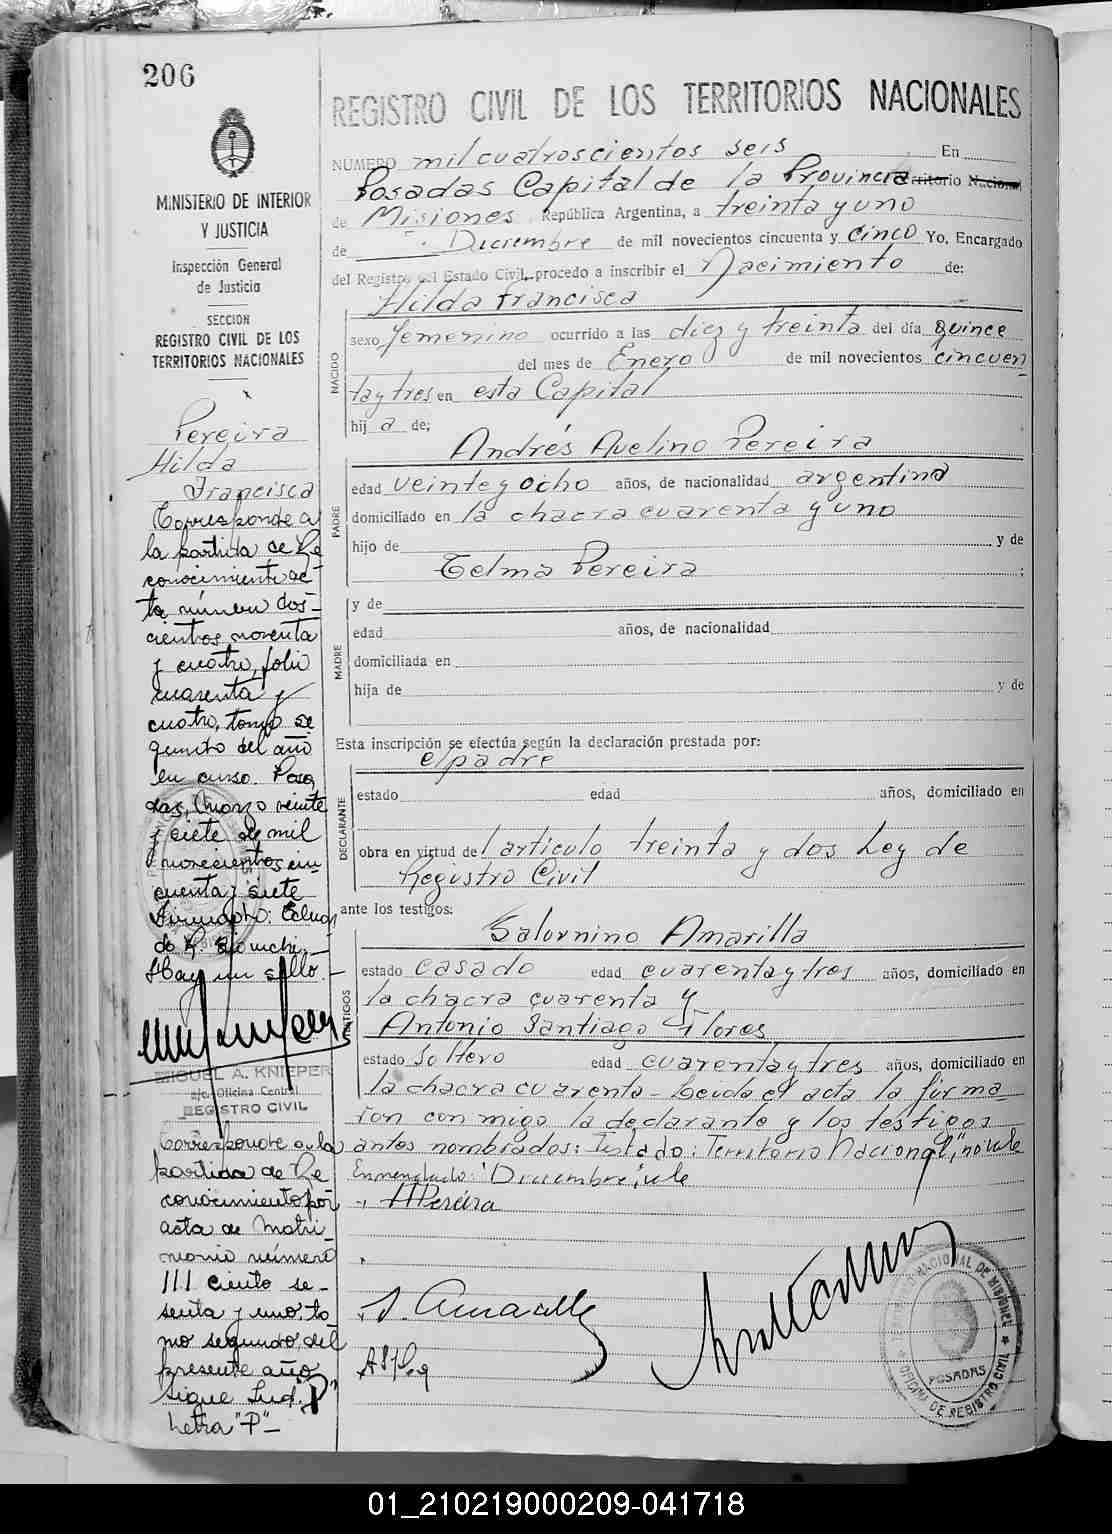 206
MINISTERIO DE INTERIOR
Y JUSTICIA
Inspección General
de Justicia
SECCION
REGISTRO CIVIL DE LOS
TERRITORIOS NACIONALES
Pereira
Hilda
Francisca
Corresponde a
la partida de Re
conocimiento ac-
ta número dos-
cientos noventa
y cuatro, folio
cuarenta y
cuatro, tomo se
gundo del año
en curso. Posa
das, Marzo veinte
y siete de mil
novecientos cin-
cuenta y siete
Firmado: Eduar
do R. Bianchi.
Hay un sello.-
MIGUEL A. KNIEPER
a/c. Oficina Central
REGISTRO CIVIL
Corresponde a la
partida de Re
conocimiento por
acta de Matri_
monio número
111 ciento se-
senta y uno, to_
mo segundo del
presente año
sigue Ind. "P"
Letra "P"_
REGISTRO CIVIL DE LOS TERRITORIOS NACIONALES
NUMERO mil cuatroscientos seis En
Posadas Capital de la Provincia Territorio Nacional
de Misiones República Argentina, a treinta y uno
de Diciembre de mil novecientos cincuenta y cinco Yo, Encargado
del Registro del Estado Civil, procedo a inscribir el Nacimiento de:
Hilda Francisca
NACIDO
sexo femenino ocurrido a las diez y treinta del día quince
del mes de Enero de mil novecientos cincuen
ta y tres en esta Capital
hij a de;
Andrés Avelino Pereira
PADRE
edad veinte y ocho años, de nacionalidad argentina
domiciliado en la chacra cuarenta y uno
hijo de y de
Telma Pereira ;
MADRE
y de
edad años, de nacionalidad
domiciliada en
hija de y de
Esta inscripción se efectúa según la declaración prestada por:
el padre
DECLARANTE
estado edad años, domiciliado en
obra en virtud del artículo treinta y dos Ley de
Registro Civil
ante los testigos:
Saturnino Amarilla
TESTIGOS
estado casado edad cuarenta y tres años, domiciliado en
la chacra cuarenta y
Antonio Santiago Flores
estado soltero edad cuarenta y tres años, domiciliado en
la chacra cuarenta - Leída el acta la firma
ron conmigo la declarante y los testigos
antes nombrados: Testado: "Territorio Nacional", no vale
Enmendado: "Diciembre", vale
APereira
S. Amarilla
OFICINA DE REGISTRO CIVIL
POSADAS
01_210219000209-041718